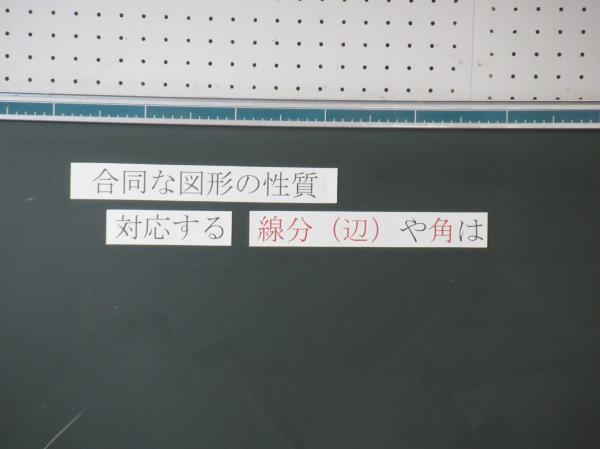 合同な図形の性質
対応する 線分（辺）や角は